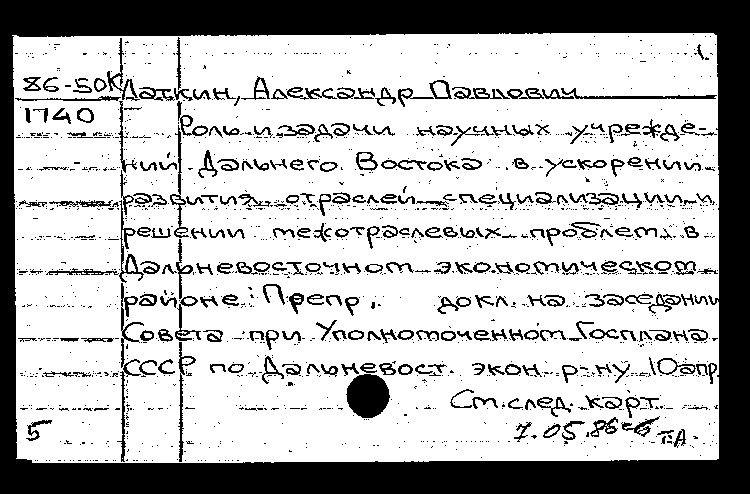 1.
86-50К Латкин, Александр Павлович
1740
Роль и задачи научных учрежде-
ний Дальнего Востока в ускорении
развития отраслей специализации и
решении межотраслевых проблем в
Дальневосточном экономическом
районе: Препр. докл. на заседании
Совета при Уполномоченном Госплана
СССР по Дальневост. экон. р-ну 10 апр
См. след. карт
5
7.05.86-6 Т.А.